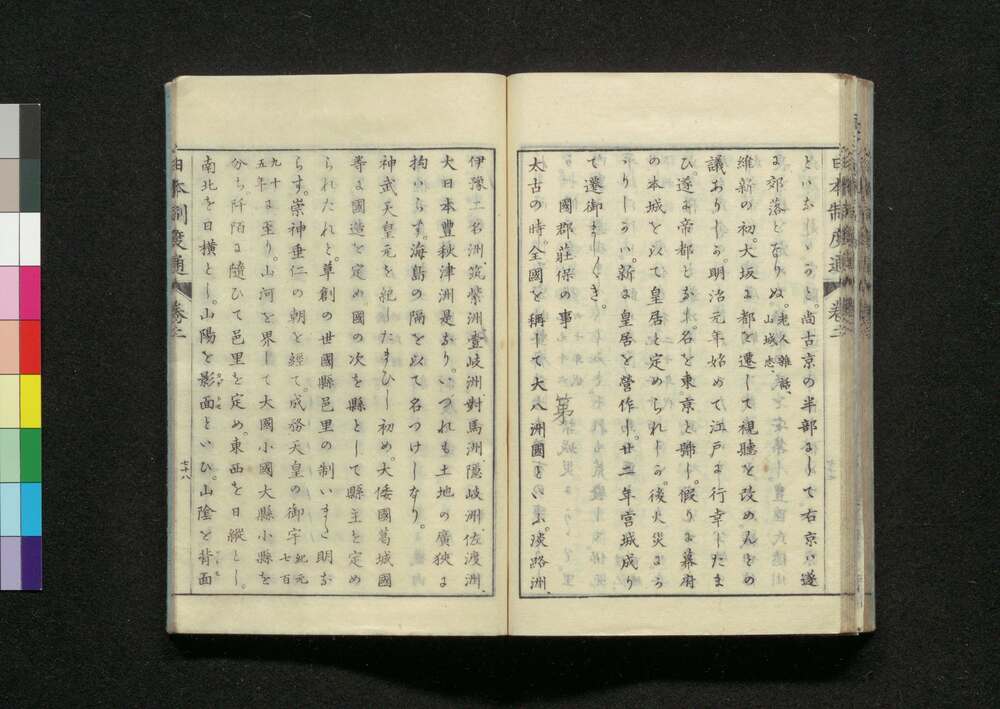 といふなりと。尚古京の半部にして右京は遂
に郊落となりぬ。老人雑話、山城志、
維新の初。大坂に都を遷して視聴を改めんとの
議ありしが。明治元年始めて江戸に行幸したま
ひ。遂に帝都となし。名を東京と号し。假りに幕府
の本城を以て皇居と定められしが。後火災にかゝ
りしかハ。新に皇居を營作し。廿二年宮城成り
て遷御ましき。
國郡莊保の事 第
太古の時。全國を稱して大八洲國といふ。淡路洲、
伊豫二名洲、筑紫洲、壹岐洲、對馬洲、隱岐洲、佐渡洲、
大日本豐秋津洲是なり。いづれも土地の廣狹に
拘いらず。海島の隔を以て名つけしなり。
神武天皇元を紀したまひし初め。大倭國葛城國
等に國造を定め國の次を縣として縣主を定め
られたれと。草創の世國縣邑里の制いまた明な
らす。崇神垂仁の朝を經て。成務天皇の御宇紀元七百
九十五年に至り。山河を界して大國小國大縣小縣を
分ち。阡陌に隨ひて邑里を定め。東西を日縱とし。
南北を日橫とし。山陽を影面といひ。山陰を背面
日本制度通 卷之二
七十八